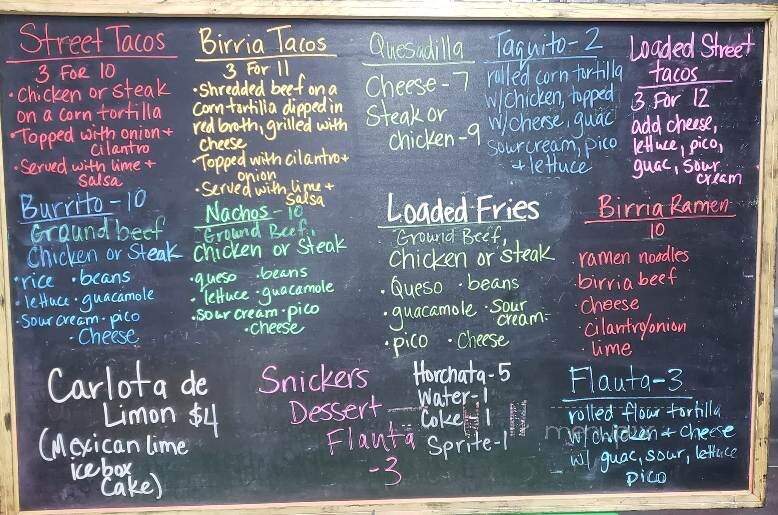 Street Tacos
3 For 10
• Chicken or steak
on a corn tortilla
• Topped with onion +
Cilantro
• Served with lime +
Salsa
Birria Tacos
3 For 11
• Shredded beef on a
Corn tortilla dipped in
red broth, grilled with
cheese
• Topped with cilantro +
onion
• Served with lime +
Salsa
Quesadilla
Cheese - 7
Steak or
chicken - 9
Taquito - 2
rolled corn tortilla
w/chicken, topped
w/cheese, guac
sour cream, pico
+ lettuce
Loaded Street
tacos
3 For 12
add cheese,
lettuce, pico,
guac, sour
cream
Burrito - 10
Ground beef
Chicken or Steak
• rice • beans
• lettuce • guacamole
• Sour cream • pico
• Cheese
Nachos - 10
Ground Beef,
Chicken or Steak
• queso • beans
• lettuce • guacamole
• sour cream • pico
• cheese
Loaded Fries
Ground Beef,
Chicken or steak
• Queso • beans
• guacamole • Sour
cream
• pico • Cheese
Birria Ramen
10
ramen noodles
• birria beef
• Cheese
• Cilantro/onion
• lime
Carlota de
Limon $4
(Mexican lime
icebox
Cake)
Snickers
Dessert
Flauta
- 3
Horchata - 5
Water - 1
Coke - 1
Sprite - 1
Flauta - 3
rolled flour tortilla
w/ chicken + cheese
w/ guac, sour, lettuce
pico